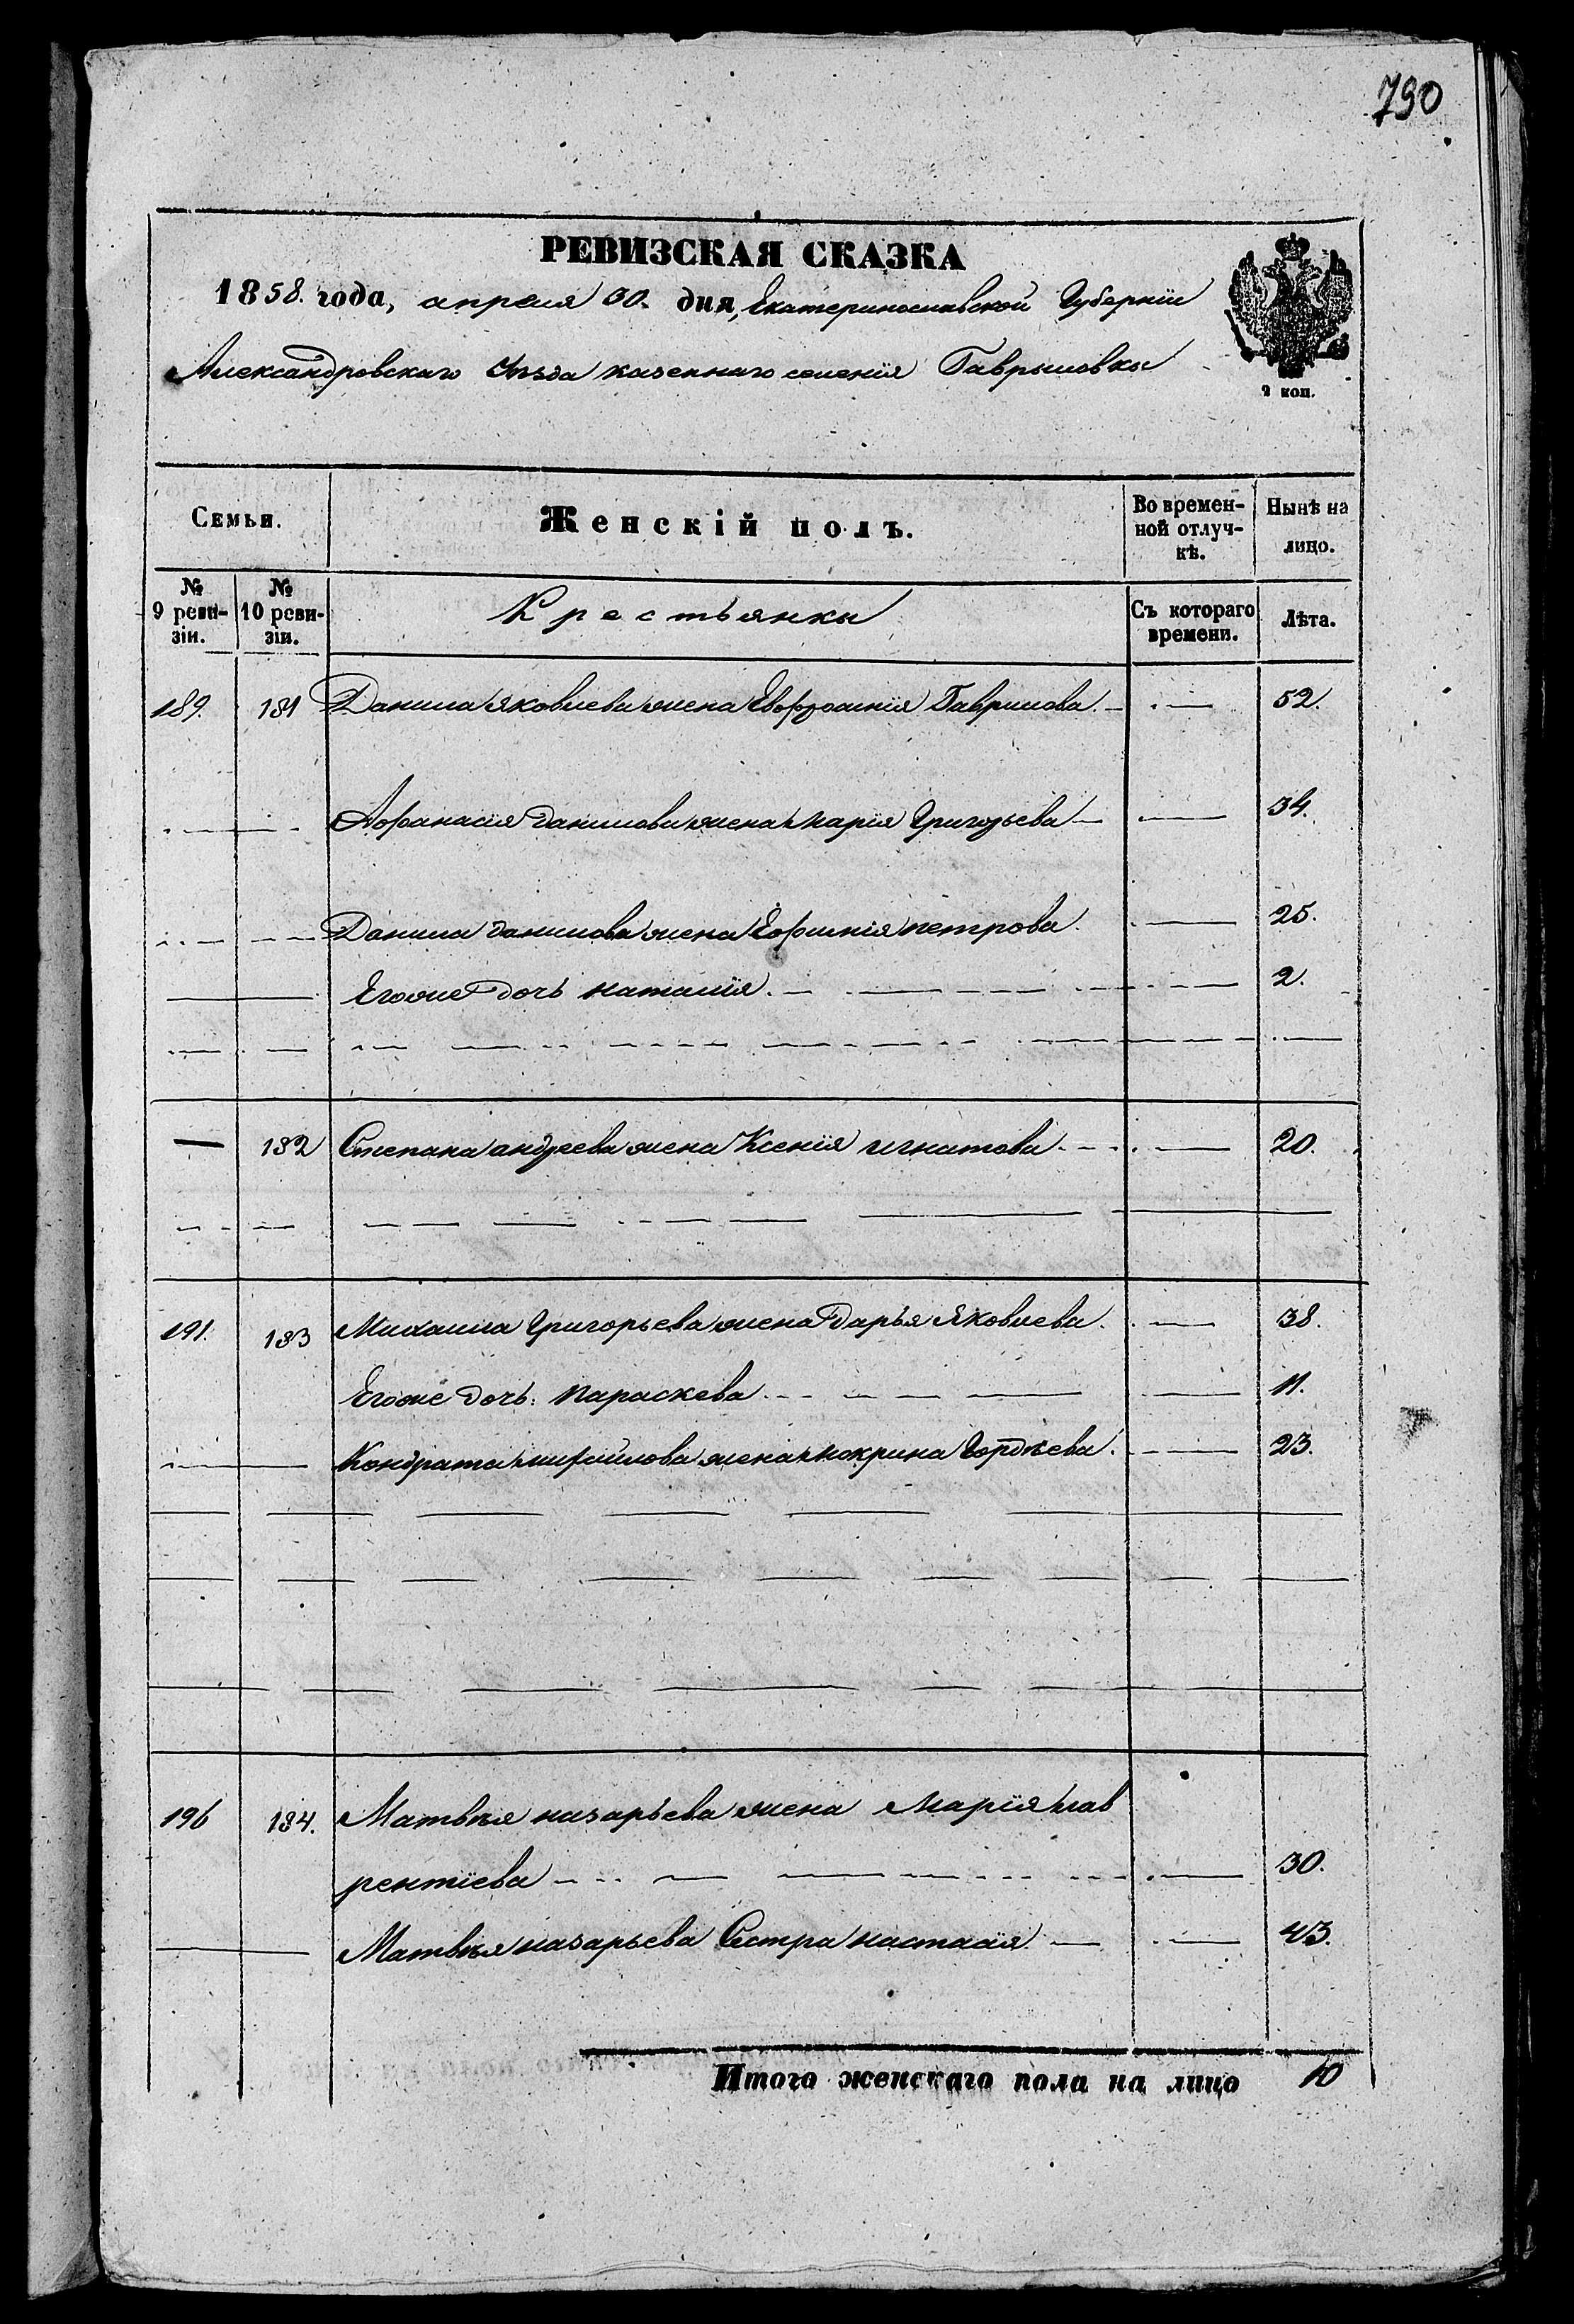 790
РЕВИЗСКАЯ СКАЗКА
1858. года, апреля 30. дня, Екатеринославской Губерніи
Александровскаго Уѣзда казеннаго селенія Гаврыловки
2 коп.
Семьи. Женскій полъ. Во времен-ной отлуч-кѣ. Нынѣ на лицо.
№ 9 реви-зіи. № 10 реви-зіи. Крестьянки Съ котораго времени. Лѣта.
189. 181 Данила Яковлева жена Евфросинія Гаврилова. 52.
Афанасія Данилова жена Марія Григорьева 34.
Данила Данилова жена Ефимія петрова. 25.
Егоже дочь наталія. 2.
182 Степана андреева жена Ксенія игнатова 20.
191. 183 Михаила Григорьева жена Дарья Яковлева. 38.
Егоже дочь: параскева. 11.
Кондрата михайлова жена мокрина Гордѣева. 23.
196 184. Матвѣя назарьева жена Марія лав
рентіева 30.
Матвѣя назарьева Сестра настасія 43.
Итого женскаго пола на лицо 10